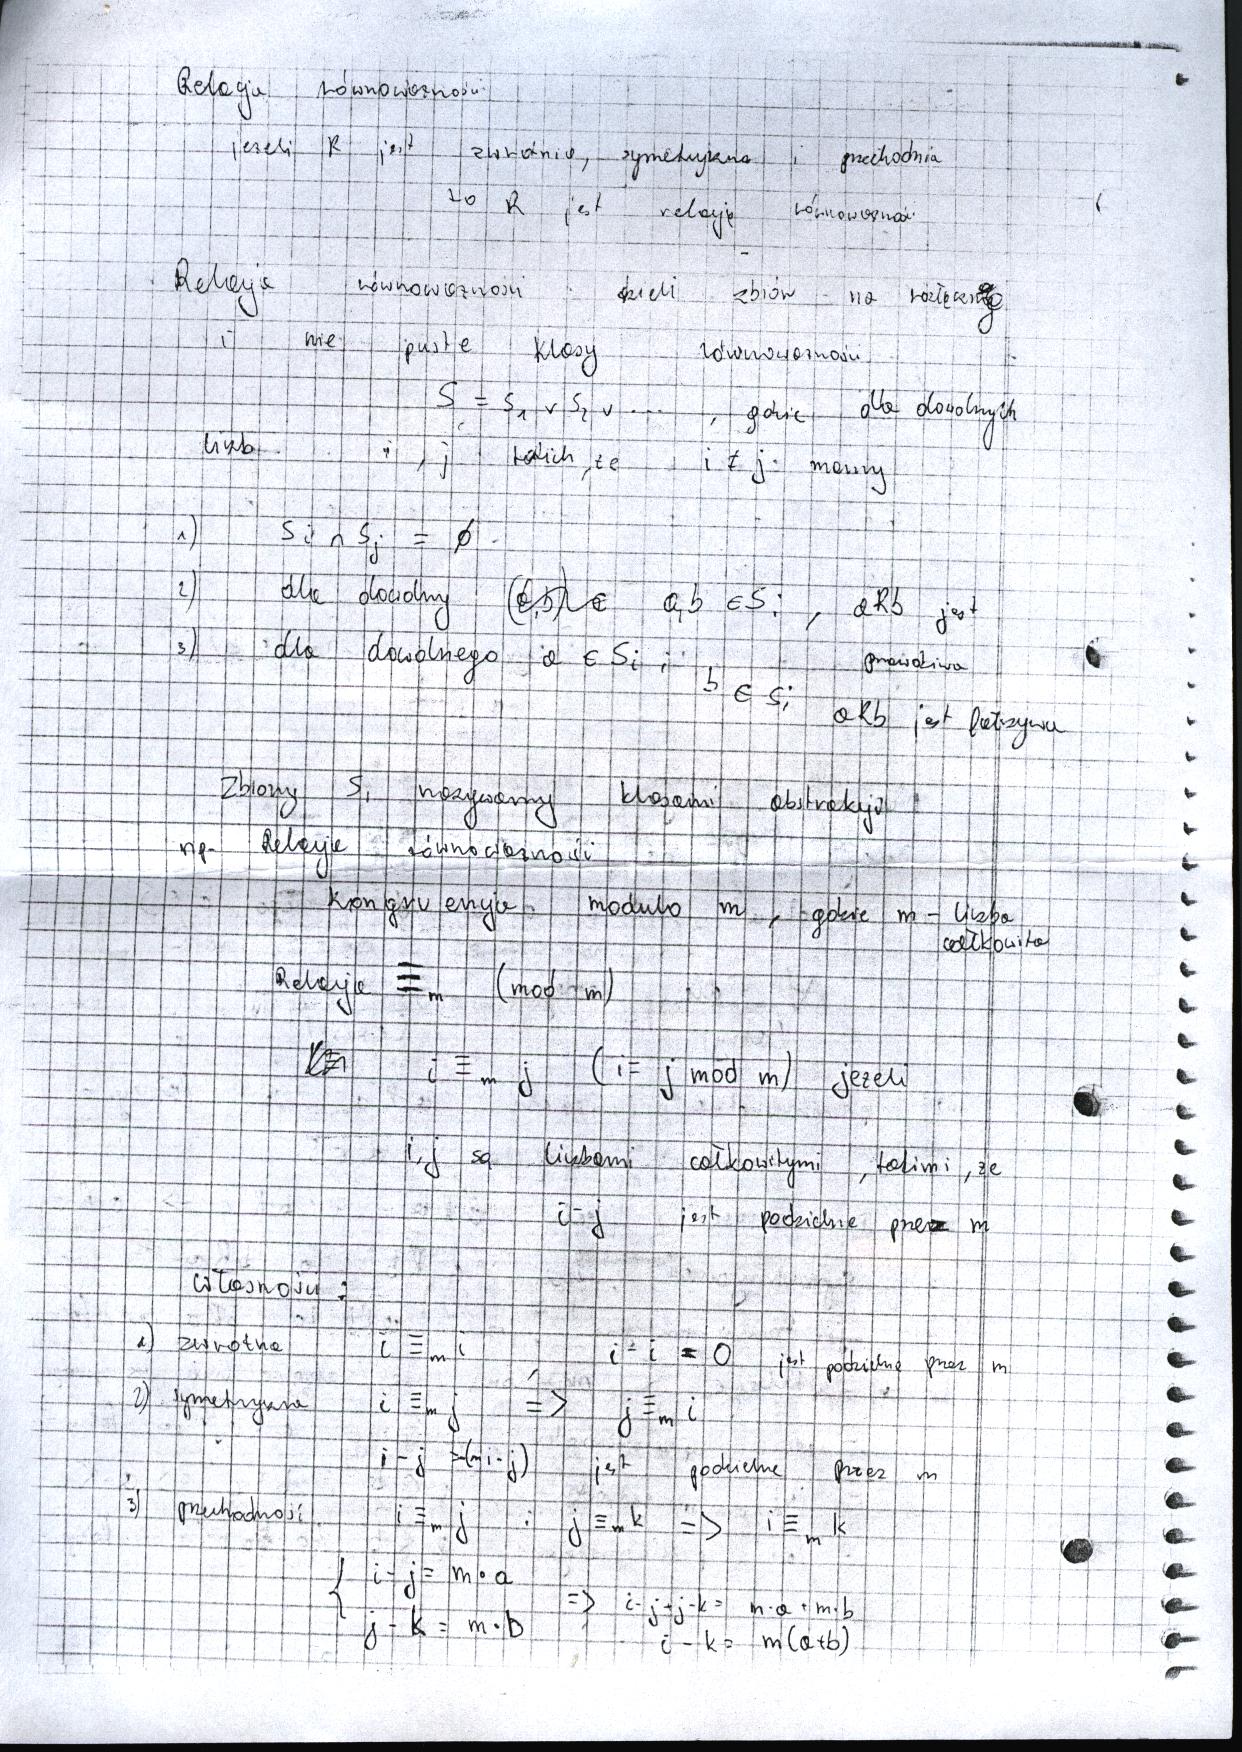 Relacja równoważności
jeżeli R jest zwrotna, symetryczna i przechodnia
to R jest relacją równoważnoś
Relacja równoważności dzieli zbiór na rozłączne
i nie puste klasy równoważności
S = S₁ ∨ S₂ ∨ ... , gdzie dla dowolnych
liczb i, j takich, że i ≠ j mamy
1) Si ∩ Sj = ∅
2) dla dowolny a,b ∈ Si , aRb jest
prawdziwa
3) dla dowolnego a ∈ Si i
b ∈ Sj
aRb jest fałszywa
Zbiory Si nazywamy klasami abstrakcji
np. Relacje równoważności
Kongruencja modulo m , gdzie m – liczba
całkowita
Relacja ≡m (mod m)
i ≡m j (i ≡ j mod m) jeżeli
i, j są liczbami całkowitymi , takimi, że
i-j jest podzielne przez m
własności :
1) zwrotna i ≡m i i - i = 0 jest podzielne przez m
2) symetryczna i ≡m j => j ≡m i
i - j jest podzielne przez m
3) przechodniość i ≡m j i j ≡m k => i ≡m k
{ i - j = m · a
j - k = m · b => i-j+j-k = m·a + m·b
i - k = m(a+b)